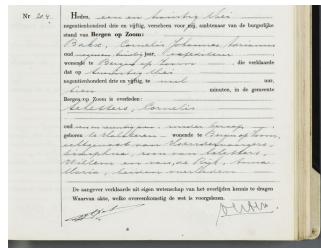 Nr 204.
Heden, een en twintig Mei
negentienhonderd drie en vijftig, verscheen voor mij, ambtenaar van de burgerlijke
stand van Bergen op Zoom:
Baks, Cornelis Johannes Adrianus
oud jaar,
wonende te Bergen op Zoom, die verklaarde
dat op twintig Mei
negentienhonderd drie en vijftig, te uur,
tien minuten, in de gemeente
Bergen op Zoom is overleden:
Selesters, Cornelis
oud zonder beroep,
geboren te Halsteren wonende te Bergen op Zoom,
echtgenoot van
zoon van Selesters,
Willem en van de Rijk, Anna
Maria, beiden overleden.
De aangever verklaarde uit eigen wetenschap van het overlijden kennis te dragen
Waarvan akte, welke overeenkomstig de wet is voorgelezen.